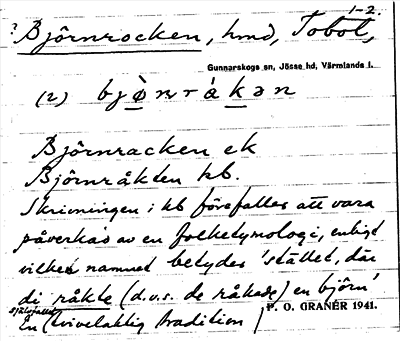 1-2.
? Björnrocken, hmd, Tobol,
Gunnarskogs sn, Jösse hd, Värmlands l.
(2) bjö̀nrákən
Björnracken ek
Björnråkten kb.
Skrivningen i kb förefaller att vara
påverkad av en folketymologi, enligt
vilken namnet betyder 'stället, där
di råkte (d.v.s. de råkade) en björn'
självfallet
En tvivelaktig tradition
P. O. GRANÉR 1941.